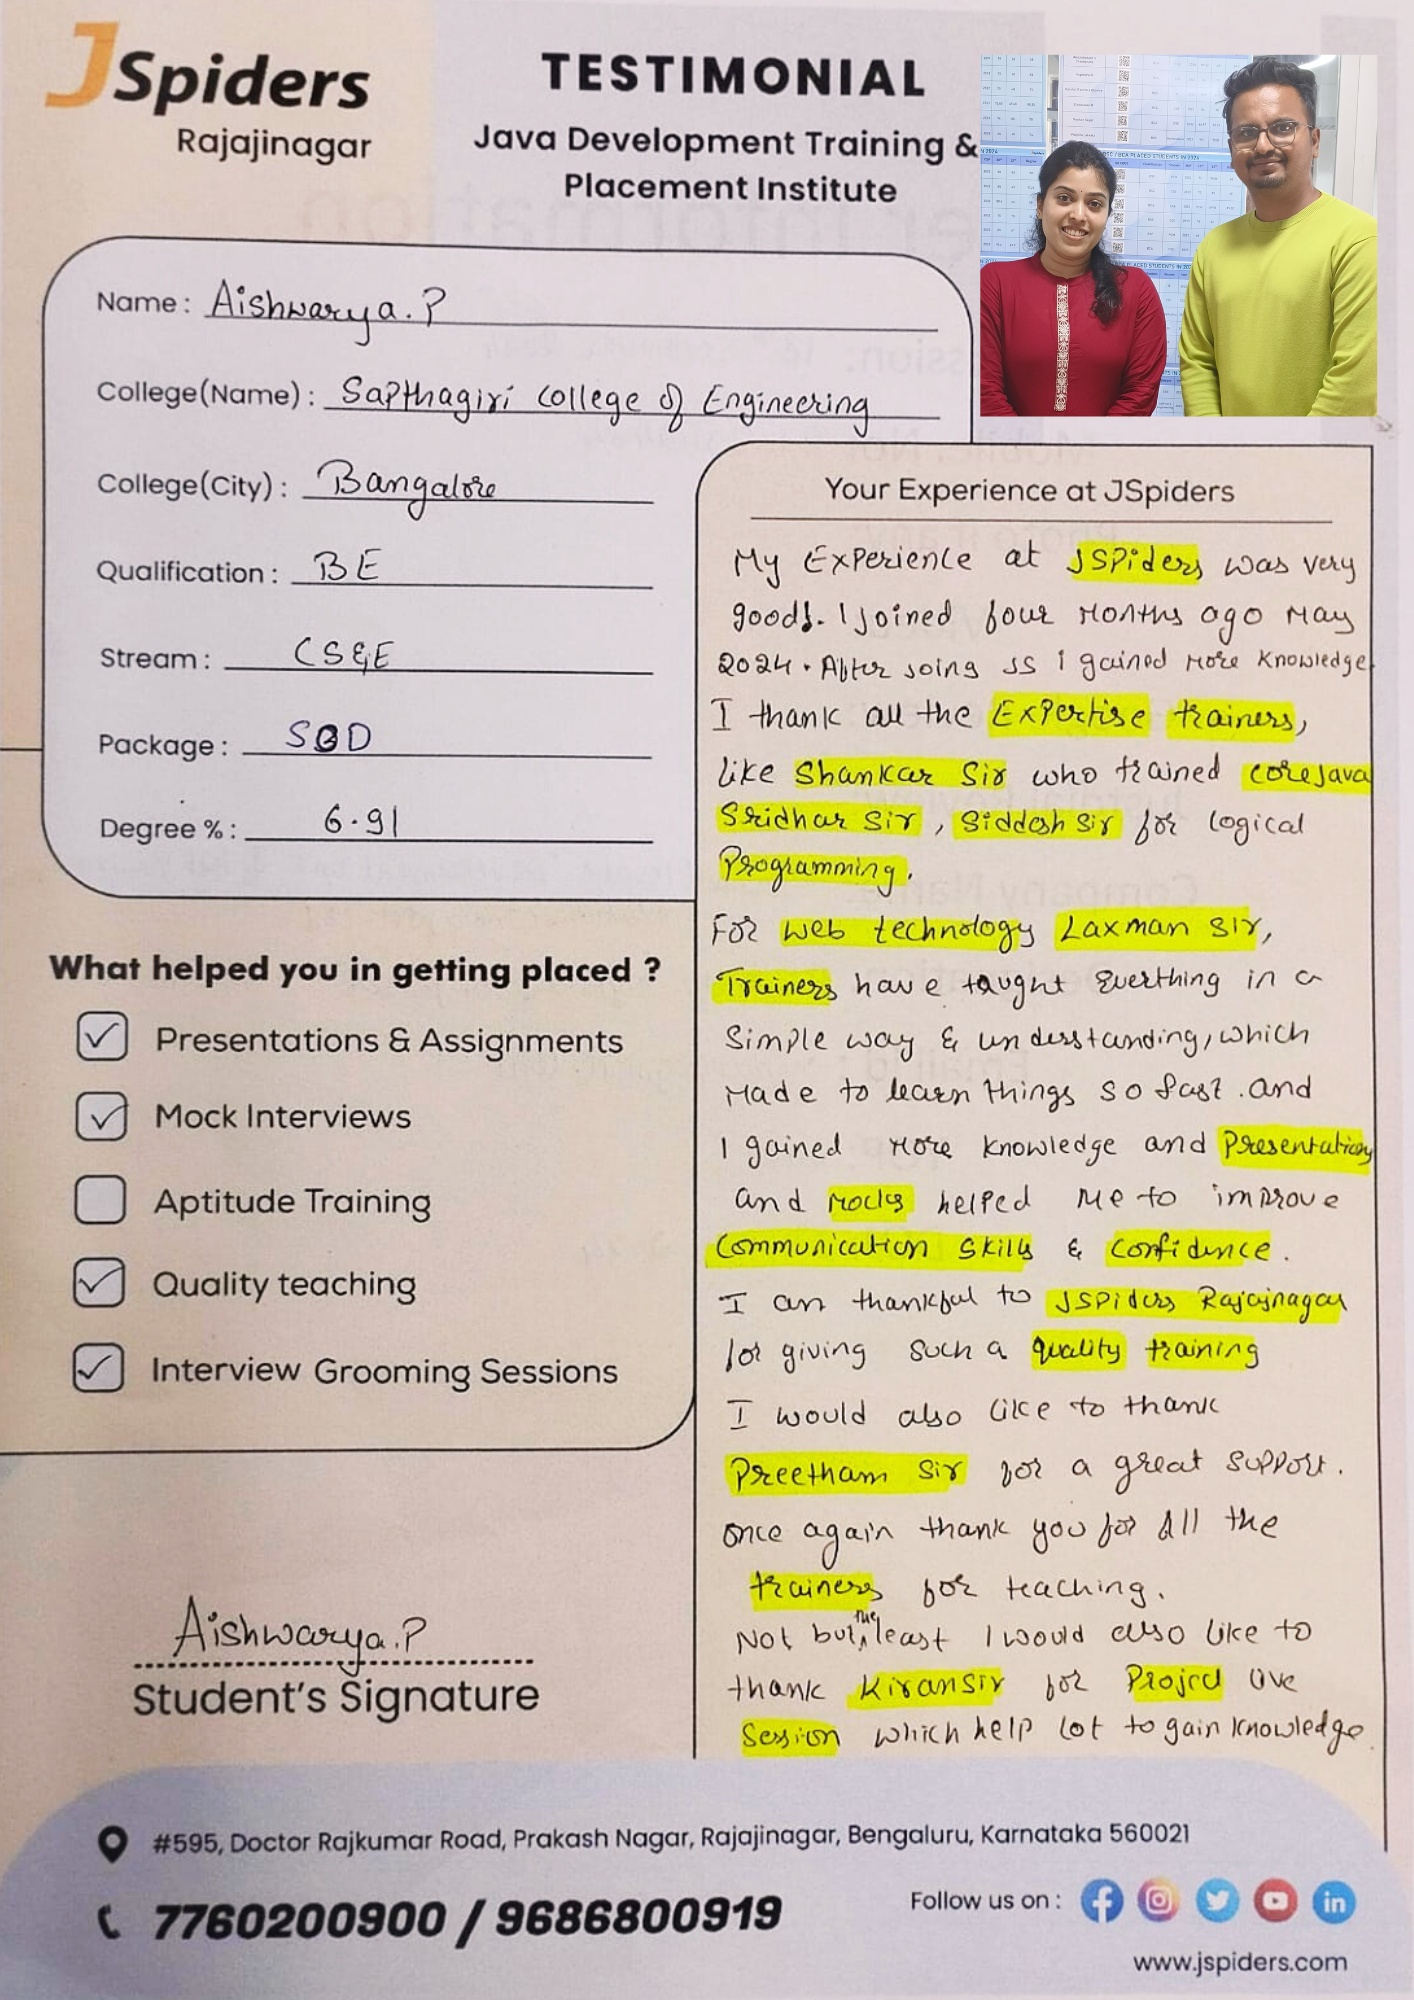 JSpiders
Rajajinagar
TESTIMONIAL
Java Development Training &
Placement Institute
Name : Aishwarya.P
College(Name) : Sapthagiri College of Engineering
College(City) : Bangalore
Qualification : BE
Stream : CS&E
Package :
Degree % : 6.91
What helped you in getting placed ?
Presentations & Assignments
Mock Interviews
Aptitude Training
Quality teaching
Interview Grooming Sessions
Aishwarya.P
Student's Signature
Your Experience at JSpiders
My Experience at JSPiders was very
good!. I joined four Months ago May
2024. After joing JS I gained More Knowledge
I thank all the Expertise trainers,
like Shankar Sir who trained coreJava
Sridhar Sir, Siddesh Sir for logical
Programming.
For web technology Laxman Sir,
Trainers have taught Everthing in a
Simple way & understanding, which
Made to learn things so fast. and
I gained More Knowledge and Presentations
and Mocks helped Me to improve
Communication Skills & Confidence.
I am thankful to JSPiders Rajajnagar
for giving such a quality training
I would also like to thank
Preetham Sir for a great support.
once again thank you for All the
trainers for teaching.
Not but the least I would also like to
thank Kiransir for Project live
Session which help lot to gain knowledge.
#595, Doctor Rajkumar Road, Prakash Nagar, Rajajinagar, Bengaluru, Karnataka 560021
7760200900 / 9686800919
Follow us on :
www.jspiders.com